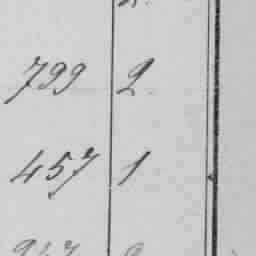 799 2
457 1